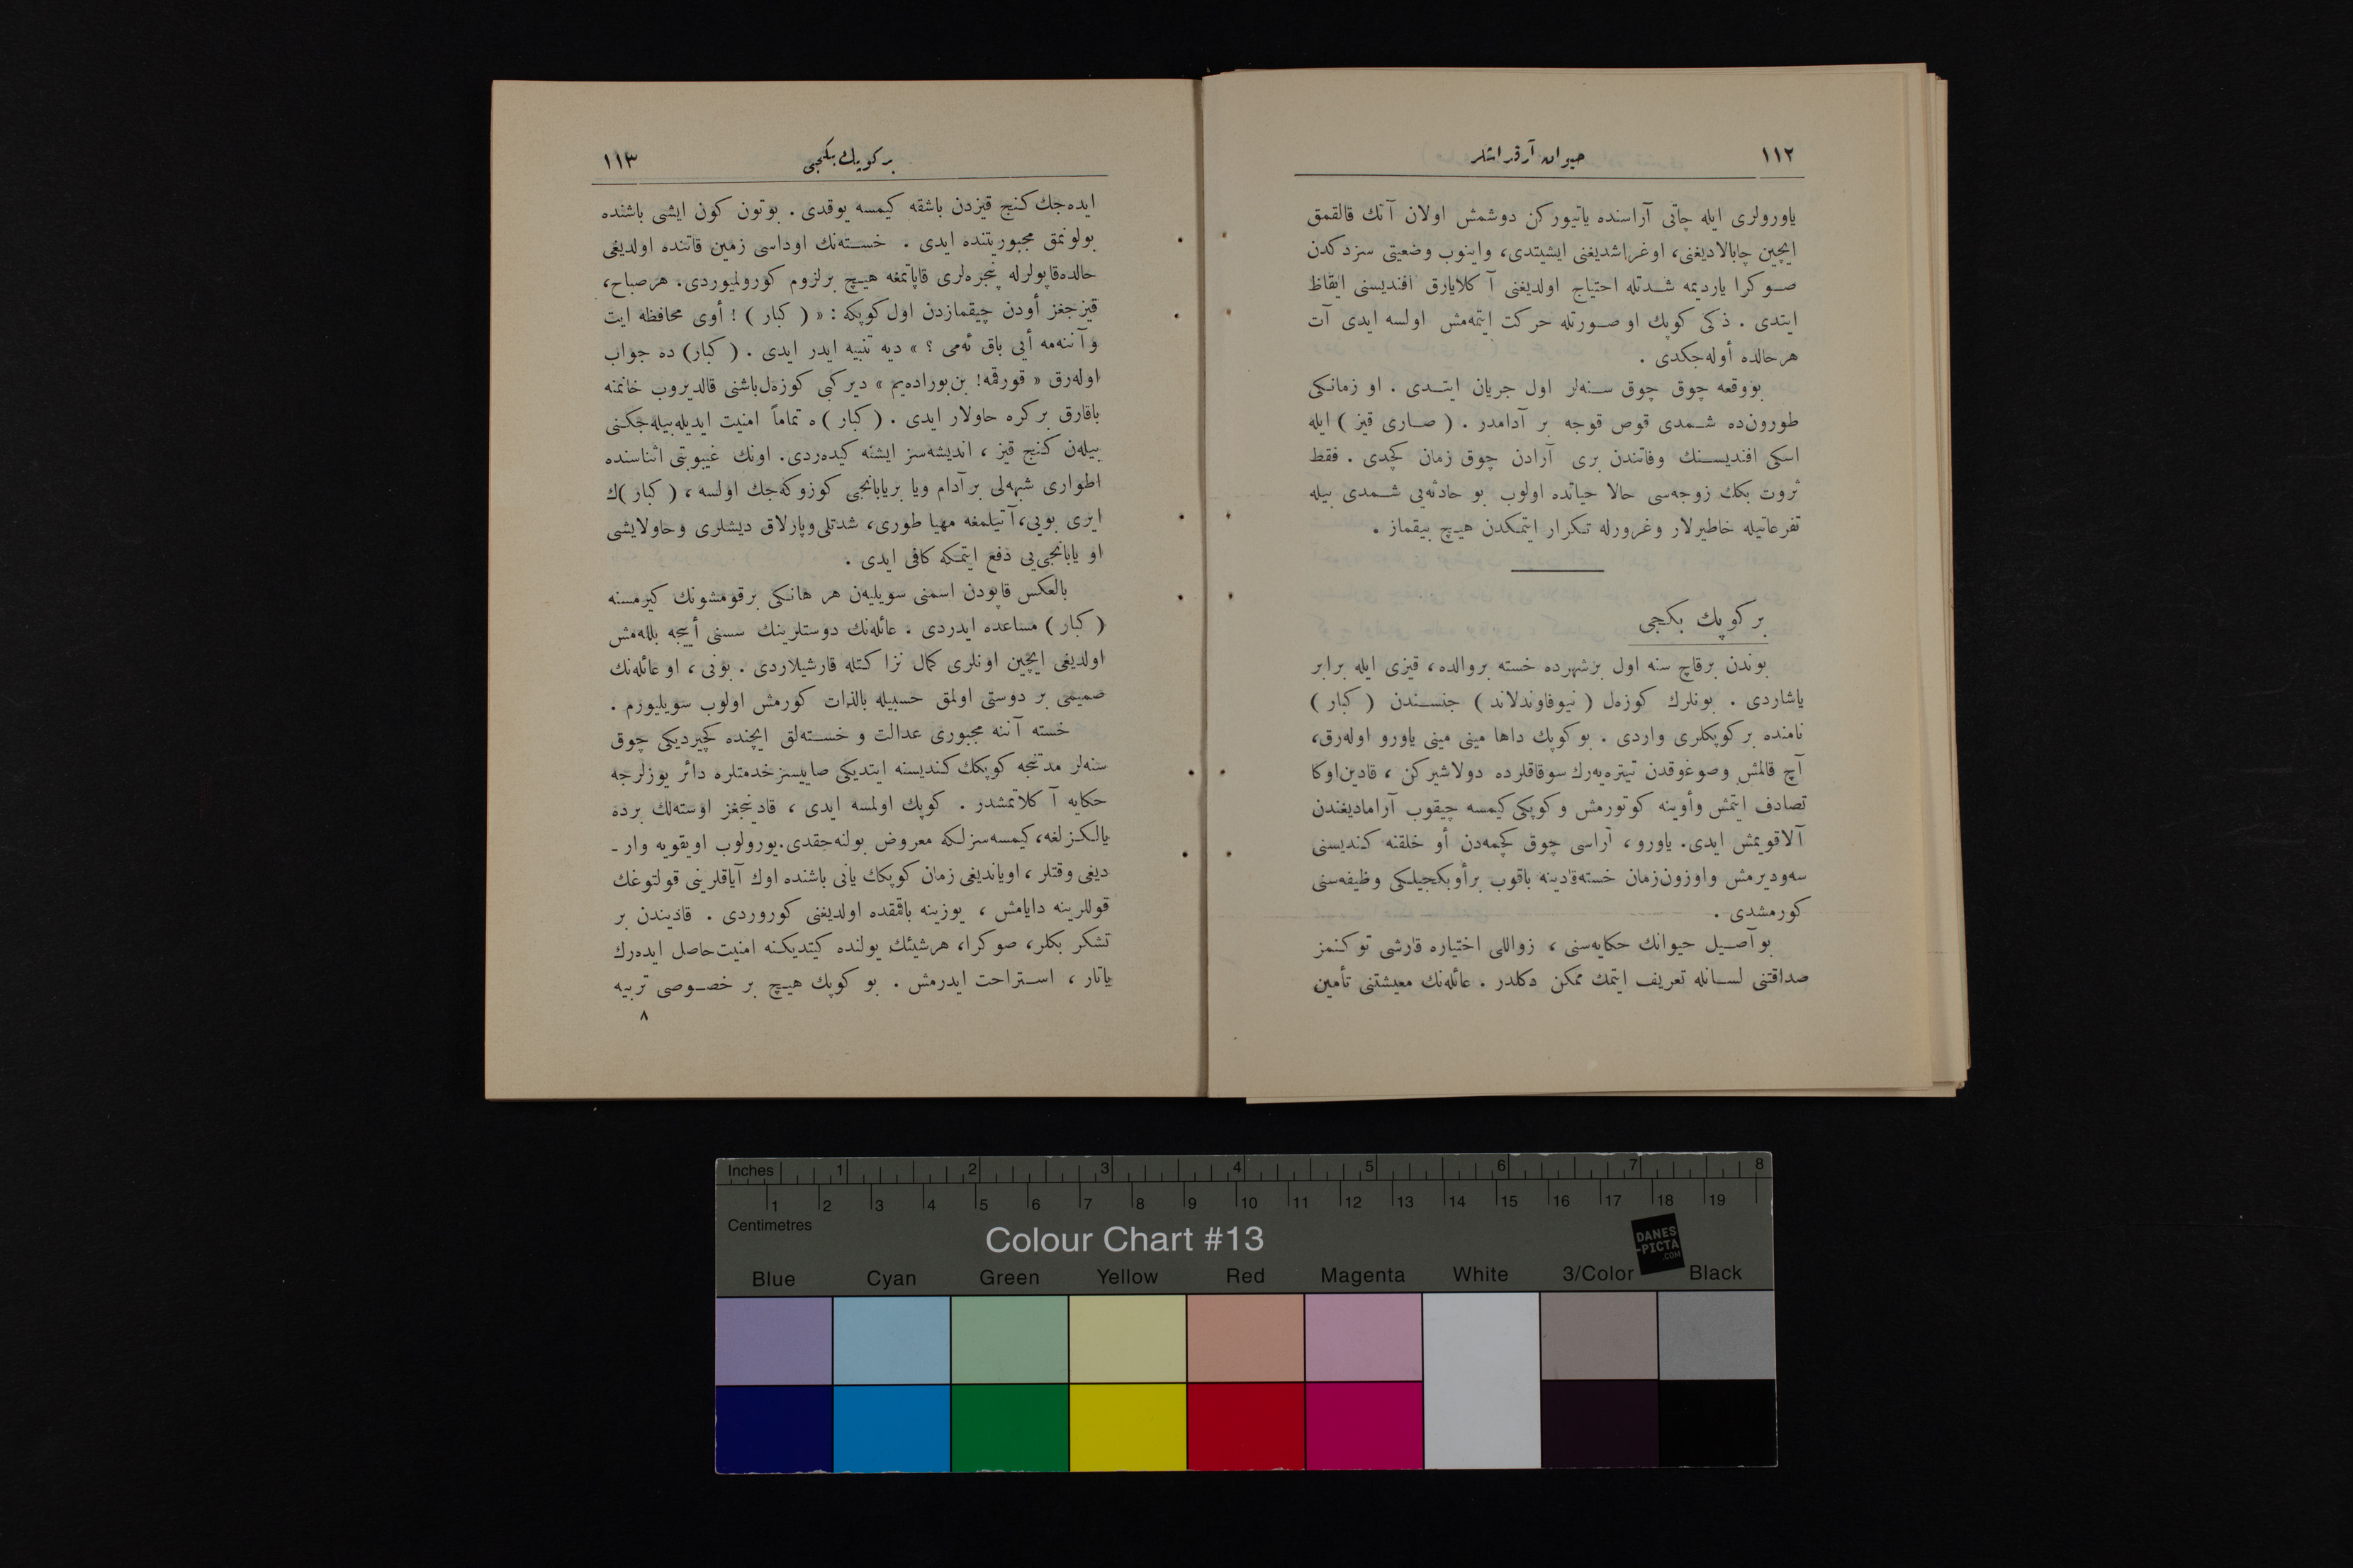 ١١٢
حيوان آرقداشلر
ياورولرى ايله چاتى آراسنده ياتيوركن دوشمش اولان آتك قالقمق
ايچين چابالاديغنى، اوغراشديغنى ايشيتدى، واينوب وضعيتى سزدكدن
صوكرا يارديمه شدتله احتياج اولديغنى آكلايارق افنديسنى ايقاظ
ايتدى . ذكى كوپك او صورتله حركت ايتمه‌مش اولسه ايدى آت
هرحالده أوله‌جكدى .
بووقعه چوق چوق سنه‌لر اول جريان ايتدى . او زمانكى
طورون‌ده شمدى قوص قوجه بر آدامدر . ( صارى قيز ) ايله
اسكى افنديسنك وفاتندن برى آرادن چوق زمان كچدى . فقط
ثروت بكك زوجه‌سى حالا حياتده اولوب بو حادثه‌يى شمدى بيله
تفرعاتيله خاطيرلار وغرورله تكرار ايتمكدن هيچ بيقماز .
بر كوپك بكجى
بوندن برقاچ سنه اول برشهرده خسته بروالده، قيزى ايله برابر
ياشاردى . بونلرك كوزه‌ل ( نيوفاوندلاند ) جنسندن ( كبار )
نامنده بر كوپكلرى واردى . بو كوپك داها مينى مينى ياورو اوله‌رق،
آچ قالمش وصوغوقدن تيتره‌يه‌رك سوقاقلرده دولاشيركن ، قادين‌اوكا
تصادف ايتمش وأوينه كوتورمش و كوپكى كيمسه چيقوب آراماديغندن
آلاقويمش ايدى. ياورو، آراسى چوق كچمه‌دن أو خلقنه كنديسنى
سه‌وديرمش واوزون‌زمان خسته‌قادينه باقوب برأوبكجيلكى وظيفه‌سنى
كورمشدى .
بو آصيل حيوانك حكايه‌سنى ، زواللى اختياره قارشى توكنمز
صداقتنى لسانله تعريف ايتمك ممكن دكلدر . عائله‌نك معيشتنى تأمين
بر كوپك بكجى
١١٣
ايده‌جك كنج قيزدن باشقه كيمسه يوقدى . بوتون كون ايشى باشنده
بولونمق مجبوريتنده ايدى . خسته‌نك اوداسى زمين قاتنده اولديغى
حالده‌قاپولرله پنجره‌لرى قاپاتمغه هيچ برلزوم كورولميوردى. هرصباح،
قيزجغز أودن چيقمازدن اول كوپكه : « ( كبار ) ! أوى محافظه ايت
وآننه‌مه أيى باق ئه‌مى ؟ » ديه تنبيه ايدر ايدى . ( كبار) ده جواب
اوله‌رق « قورقمه! بن‌بوراده‌يم » دير كبى كوزه‌ل‌باشنى قالديروب خانمنه
باقارق بر كره حاولار ايدى . ( كبار ) ه تماماً امنيت ايديله‌بيله‌جكنى
بيله‌ن كنج قيز ، انديشه‌سز ايشنه كيده‌ردى. اونك غيبوبتى اثناسنده
اطوارى شبهه‌لى بر آدام ويا بريابانجى كوزوكه‌جك اولسه ، ( كبار )ك
ايرى بويى، آتيلمغه مهيا طورى، شدتلى‌وپارلاق ديشلرى وحاولايشى
او يابانجى‌يى دفع ايتمكه كافى ايدى .
بالعكس قاپودن اسمنى سويليه‌ن هر هانكى برقومشونك كيرمسنه
( كبار ) مساعده ايدردى . عائله‌نك دوستلرينك سسنى أييجه بلله‌مش
اولديغى ايچين اونلرى كمال نزاكتله قارشيلاردى . بونى ، او عائله‌نك
صميمى بر دوستى اولمق حسبيله بالذات كورمش اولوب سويليورم .
خسته آننه مجبورى عدالت و خسته‌لق ايچنده كچيرديكى چوق
سنه‌لر مدتنجه كوپكك كنديسنه ايتديكى صاييسز خدمتلره دائر يوزلرجه
حكايه آكلاتمشدر . كوپك اولمسه ايدى ، قادينجغز اوسته‌لك برده
يالكزلغه، كيمسه‌سزلكه معروض بولنه‌جقدى. يورولوب اويقويه وار -
ديغى وقتلر ، اوياندیغى زمان كوپكك يانى باشنده اوك آياقلرينى قولتوغك
قوللرينه دايامش ، يوزينه باقمقده اولديغنى كوروردى . قاديندن بر
تشكر بكلر، صوكرا، هرشيئك يولنده كيتديكنه امنيت حاصل ايده‌رك
ياتار ، استراحت ايدرمش . بو كوپك هيچ بر خصوصى تربيه
٨
Inches 1 2 3 4 5 6 7 8
1 2 3 4 5 6 7 8 9 10 11 12 13 14 15 16 17 18 19
Centimetres
Colour Chart #13
DANES
-PICTA
.COM
Blue Cyan Green Yellow Red Magenta White 3/Color Black